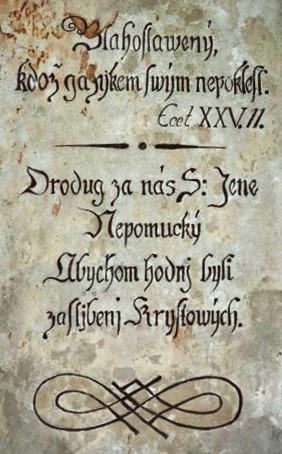 Blahoslawený,
kdož gazýkem swým nepoklesl.
Eccl XXV. 11.
Orodug za nás S: Jene
Nepomucký
Abychom hodnj byli
zasljbenj Krystowých.